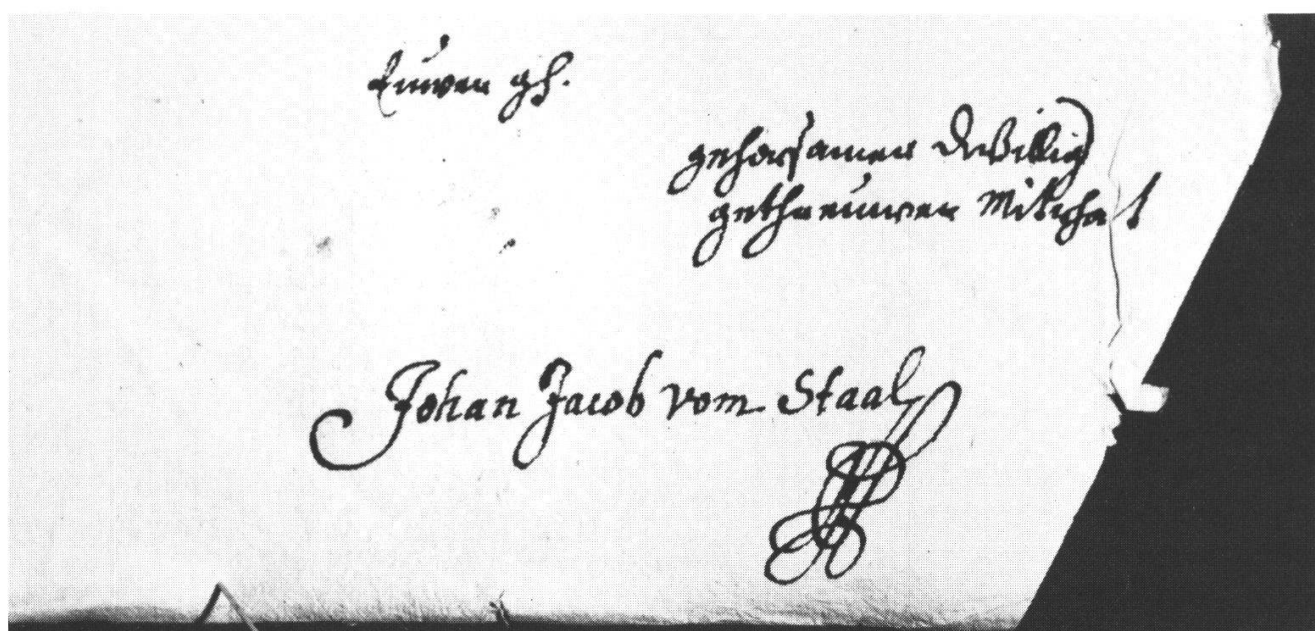 Euwer gh.
gehorsamer Dwillig
gethreuwer Mitrhat
Johan Jacob vom Staal